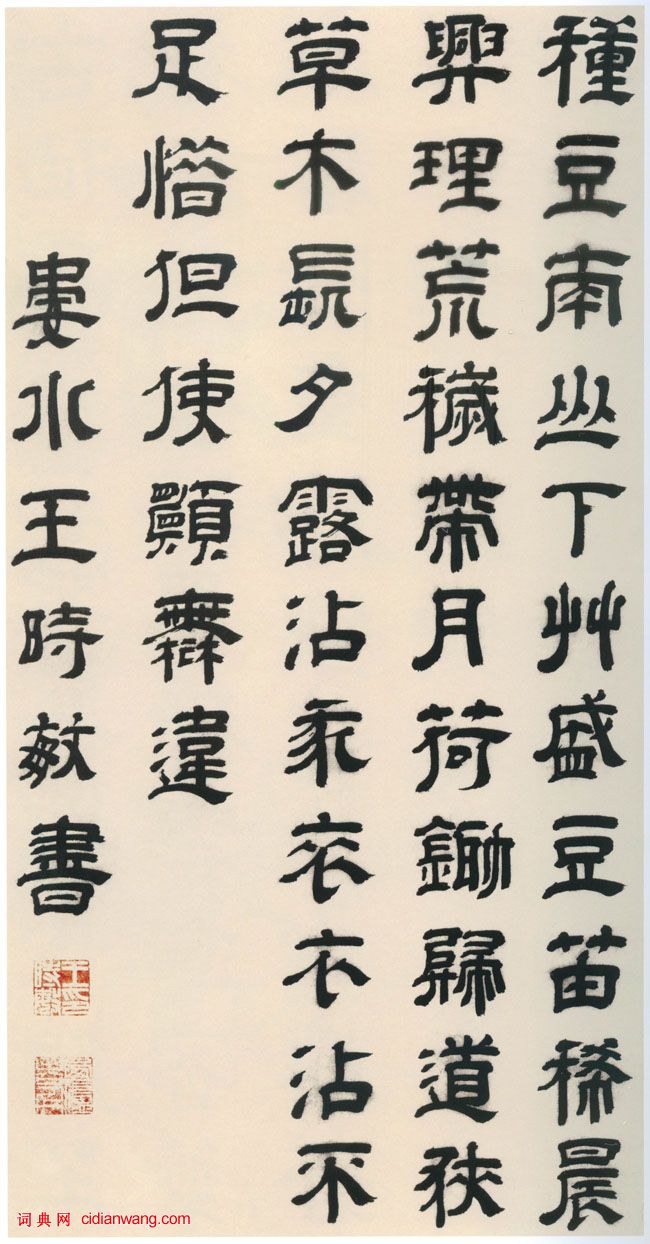 種豆南山下艸盛豆苗稀晨
興理荒穢帶月荷鋤歸道狹
草木長夕露沾我衣衣沾不
足惜但使願無違
婁水王時敏書
词典网 cidianwang.com